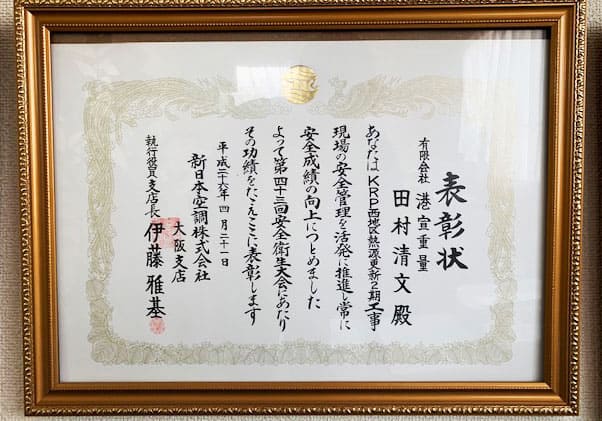 表彰状
有限会社 港宣重量
田村清文 殿
あなたはKRP西地区熱源更新2期工事
現場の安全管理を活発に推進し常に
安全成績の向上につとめました
よって第四十三回安全衛生大会にあたり
その功績をたたえここに表彰します
平成二十六年 四月二十一日
新日本空調株式会社
大阪支店
執行役員支店長 伊藤雅基